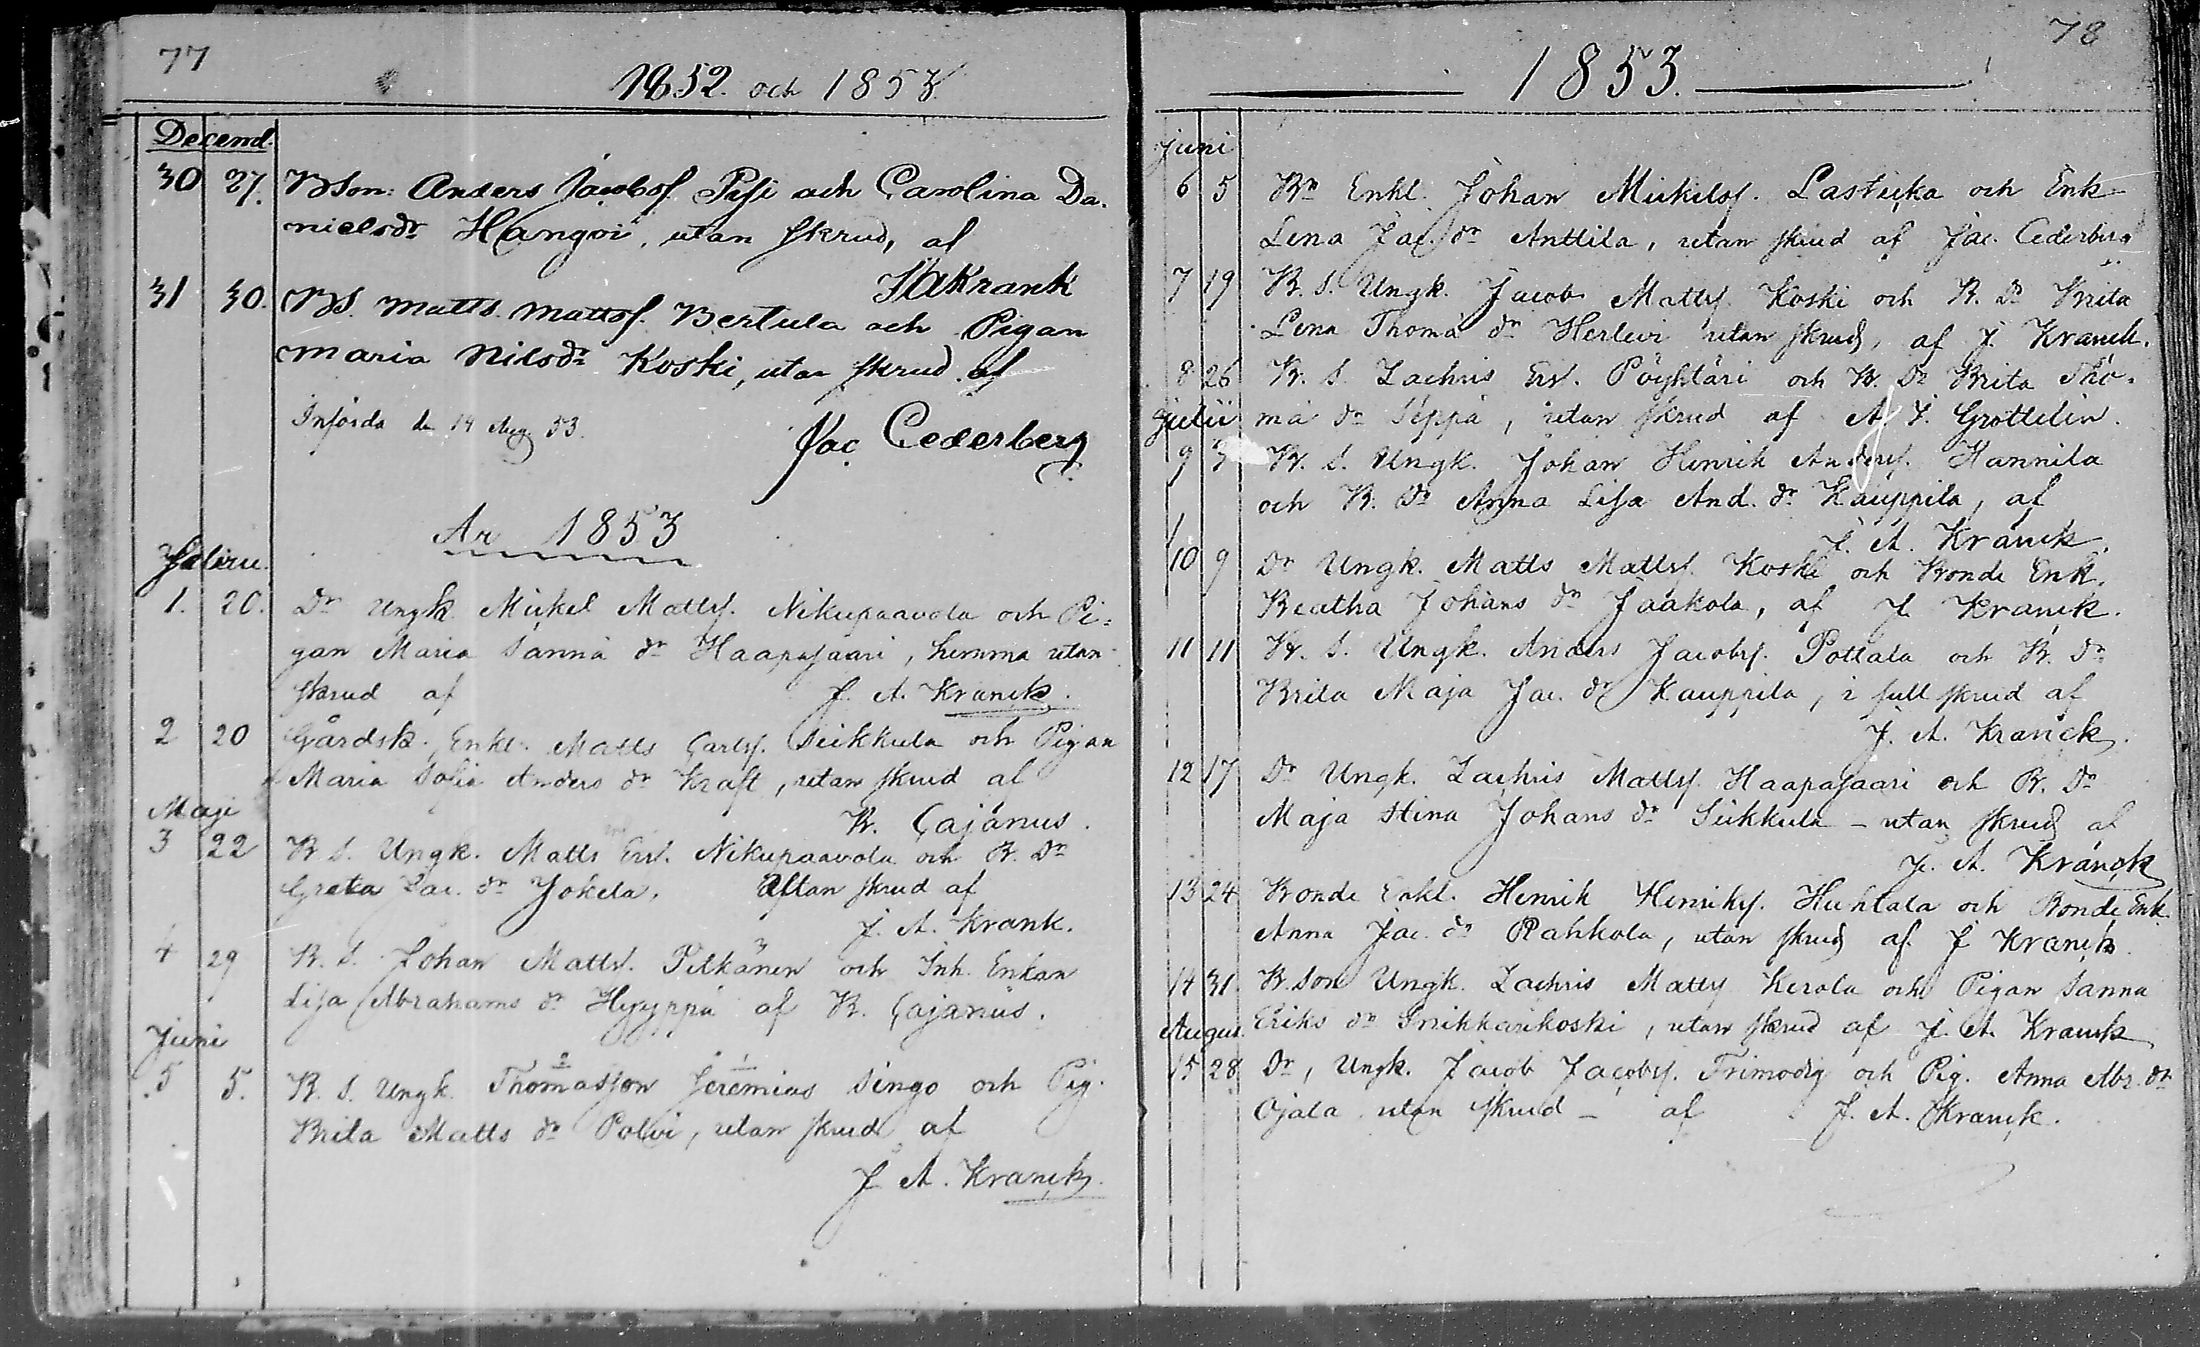 77
1852 och 1853.
Decemb.
30 27. BSon: Anders Jacobsſ. Pesi och Carolina Da-
nielsdr Hangvi, utan skrud, af
JAKrank
31 30. BS. Matts Mattsſ. Bertula och Pigan
Maria Nilsdr Koski, utan skrud af
Införda d. 14 Aug 53.
Jac Cederberg
År 1853
1. 20. Dr Ungk. Mickel Mattsſ. Nikupaavola och Pi-
gan Maria Sanna dr Haapasaari, hemma utan
skrud af J. A. Kranck.
2 20 Gårdsk. Enkl. Matts Carlsſ. Siikkula och Pigan
Maria Sofia Anders dr Kraft, utan skrud af
K. Cajanus.
Maji
3 22 B S. Ungk. Matts Ersſ. Nikupaavola och B. Dr
Greta Jac. dr Jokela. Utan skrud af
J. A. Krank.
4 29 B. S. Johan Mattsſ. Pitkänen och Inh. Enkan
Lisa Abrahams dr Hyyppä af K. Cajanus.
Juni
5 5. B. S. Ungk. Thomasson Jeremias Singo och Pig.
Brita Matts dr Polvi, utan skrud af
J A. Kranck.
78
1853.
Juni
6 5 Bn Enkl. Johan Mickelsſ. Lastikka och Enk
Lena Jac. dr Anttila, utan skrud af Jac. Cederberg
7 19 B. S. Ungk. Jacob Mattsſ. Koski och B. Dr Brita
Lena Thoma dr Herlevi utan skrud, af J. Kranck.
8 26 B. S. Zachris Ersſ. Pöyhtäri och B. Dr Brita Tho-
Julii ma dr Seppä, utan skrud af A J. Grottelin.
9 3 B. S. Ungk. Johan Henrik Andersſ. Hannila
och B. Dr Anna Lisa And. dr Kauppila, af
J. A. Kranck.
10 9 Dr Ungk. Matts Mattsſ. Koski och Bonde Enk.
Beatha Johans dr Jaakola, af J. Kranck.
11 11 B. S. Ungk. Anders Jacobsſ. Pottala och B. Dr
Brita Maja Jac. dr Kauppila, i full skrud af
J. A. Kranck.
12 17 Dr Ungk. Zachris Mattsſ. Haapasaari och B. Dr
Maja Stina Johans dr Siikkula - utan skrud af
J. A. Kranck
13 24 Bonde Enkl. Henrik Henriksſ. Huhtala och Bonde Enk.
Anna Jac. dr Pahkola, utan skrud af J Kranck
14 31. B. Son Ungk. Zachris Mattsſ Kerola och Pigan Sanna
Augus. Eriks dr Snikkarikoski, utan skrud af J. A. Kranck
15 28 Dr, Ungk. Jacob Jacobsſ. Frimodig och Pig. Anna Abr. dr
Ojala utan skrud - af J. A. Kranck.